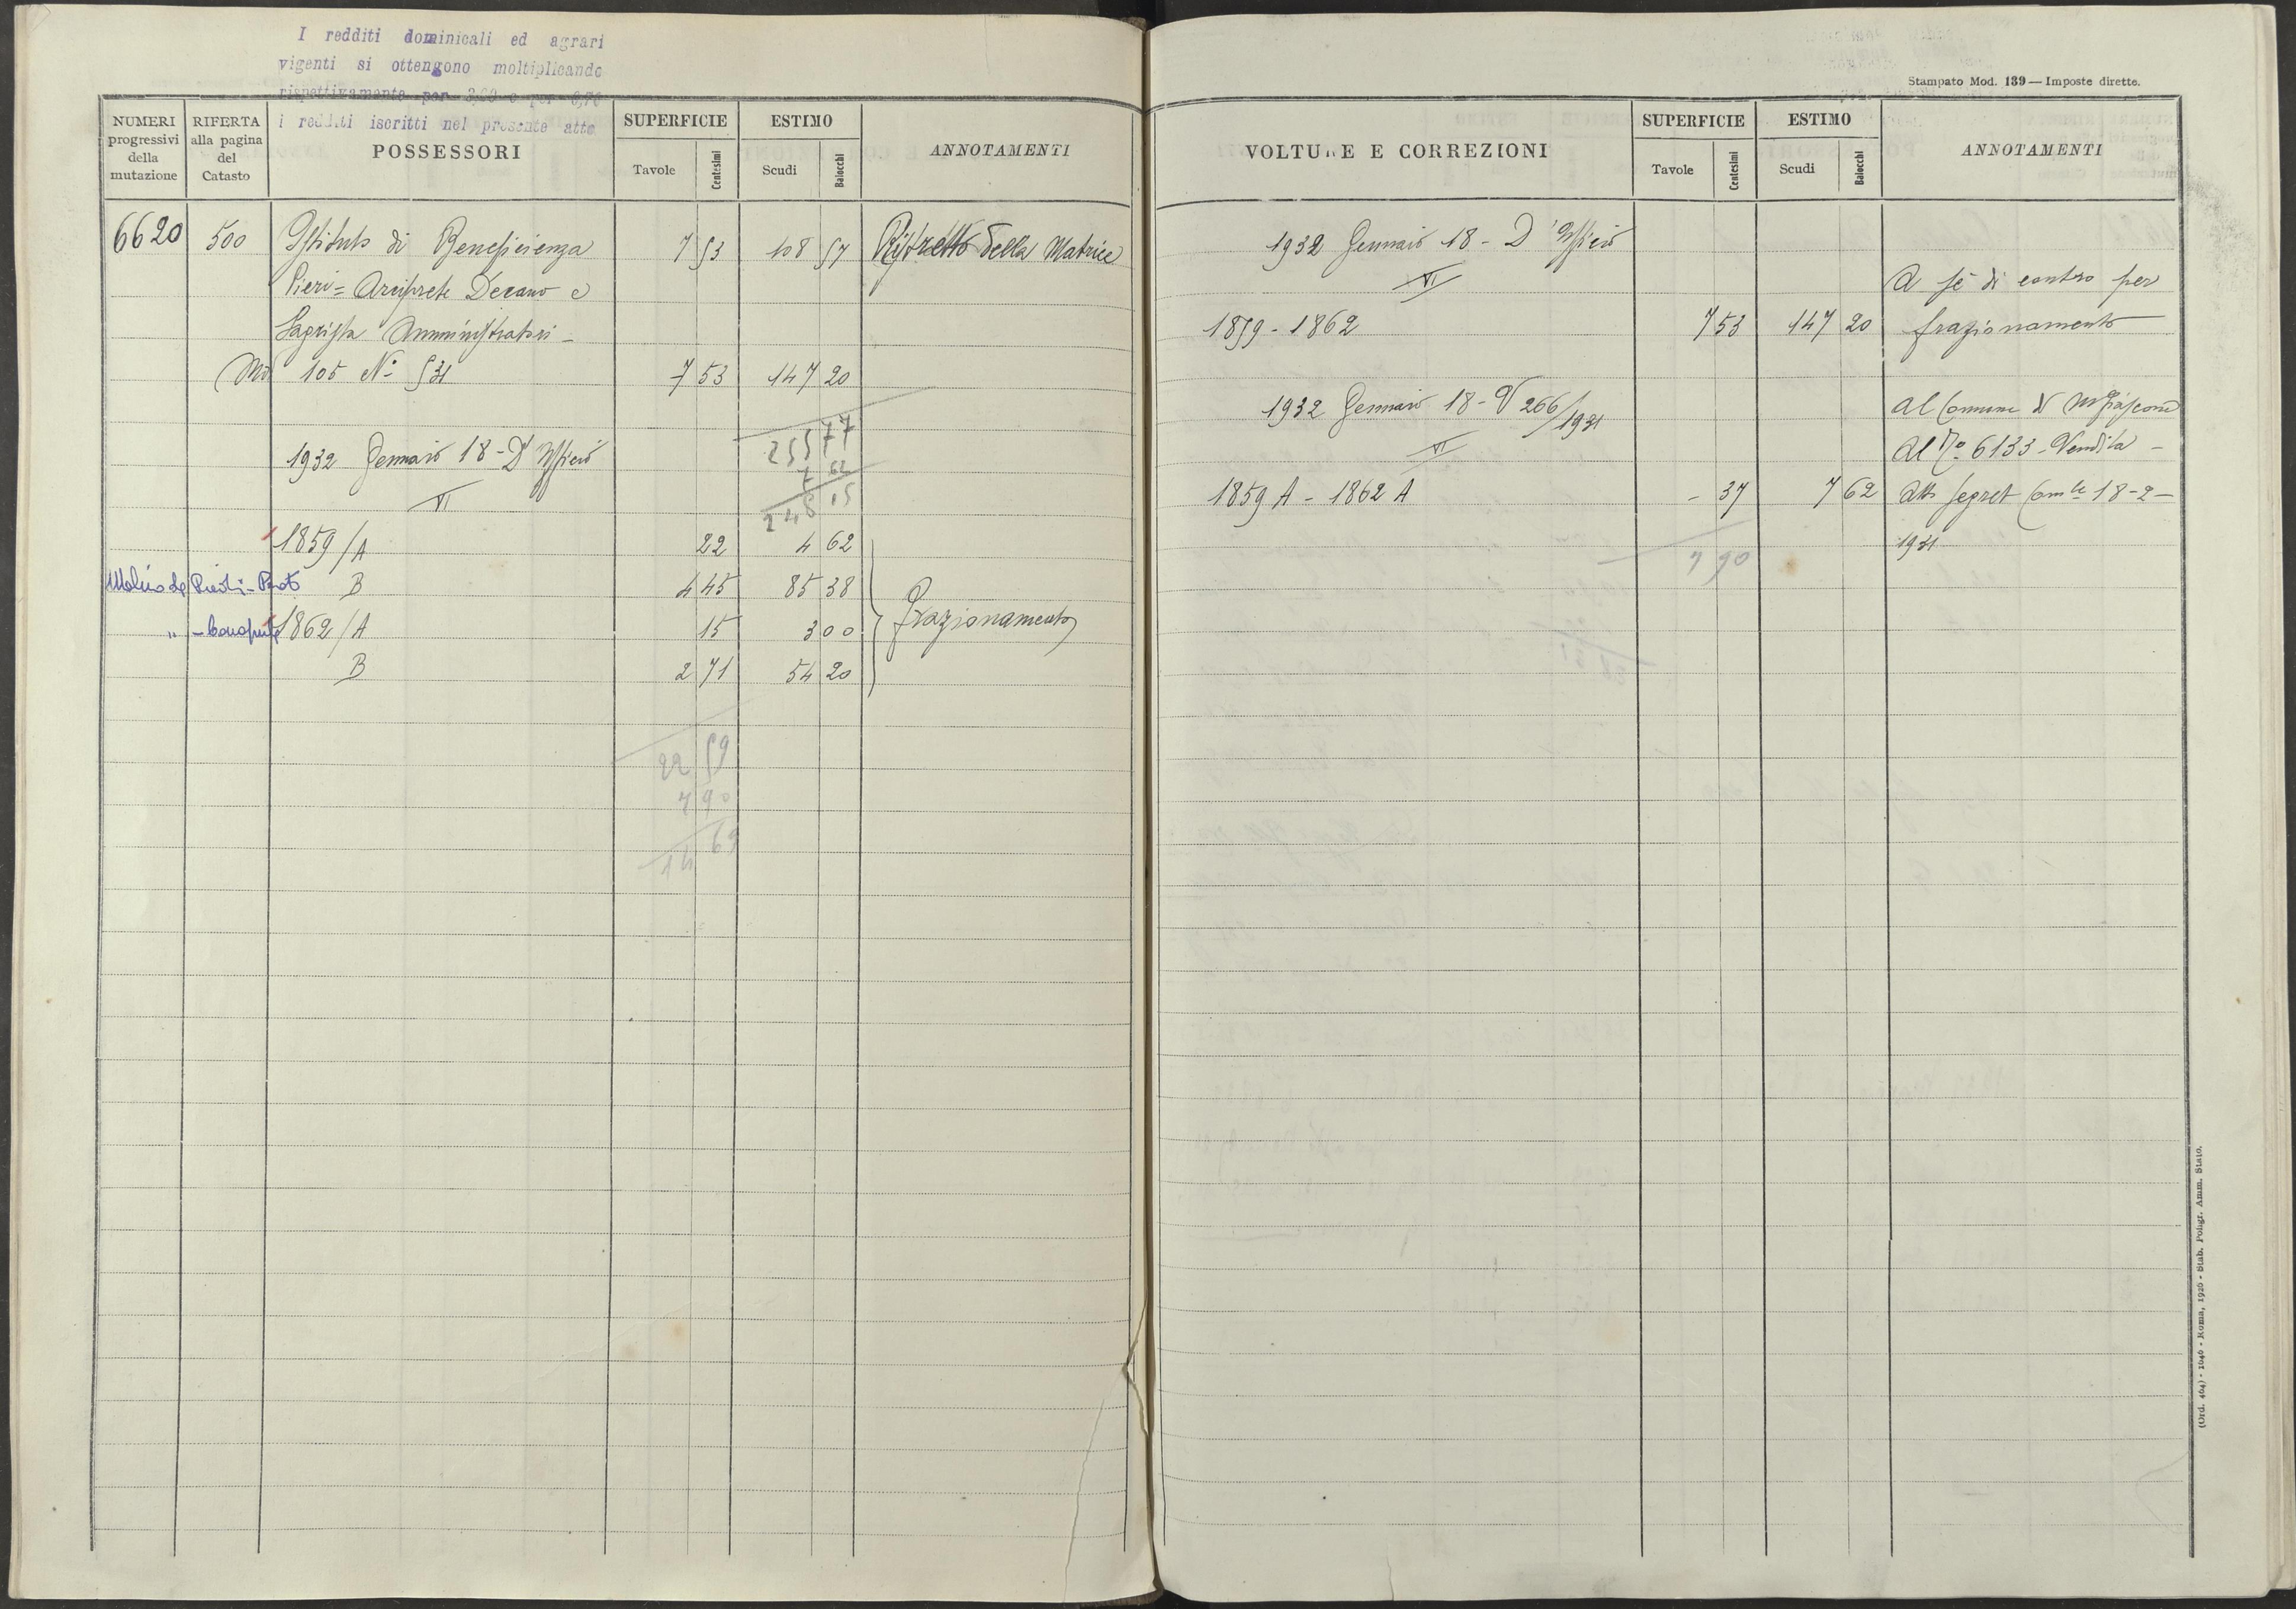 I redditi dominicali ed agrari
vigenti si ottengono moltiplicando
rispettivamente per
i redditi iscritti nel presente atto
NUMERI progressivi della mutazione
RIFERTA alla pagina del Catasto
POSSESSORI
SUPERFICIE
Tavole
Centesimi
ESTIMO
Scudi
Baiocchi
ANNOTAMENTI
6620 500 Istituto di Beneficienza 7 53 108 57 Ristretto della Matrice
Pieri = Arciprete Decano e
Sagrista Amministratori -
Mod 105 N° 531 7 53 147 20
255 77
7 62
248 15
1932 Gennaio 18 - D'Ufficio
VI
1859/A 22 4 62
B 4 45 85 38
1862/A 15 3 00 Frazionamento
B 2 71 54 20
22 59
7 90
14 69
Stampato Mod. 139 — Imposte dirette.
VOLTURE E CORREZIONI
SUPERFICIE
Tavole
Centesimi
ESTIMO
Scudi
Baiocchi
ANNOTAMENTI
1932 Gennaio 18 - D'Ufficio
VI
A sé di contro per
1859 - 1862 7 53 147 20 frazionamento
1932 Gennaio 18 - V 266/1931
Al Comune di
VI
Al N° 6133 - Vendita -
1859 A - 1862 A - 37 7 62 Atto Segret Comle 18-2-
1931
7 90
(Ord. 464) - 1040 - Roma, 1926 - Stab. Poligr. Amm. Stato.